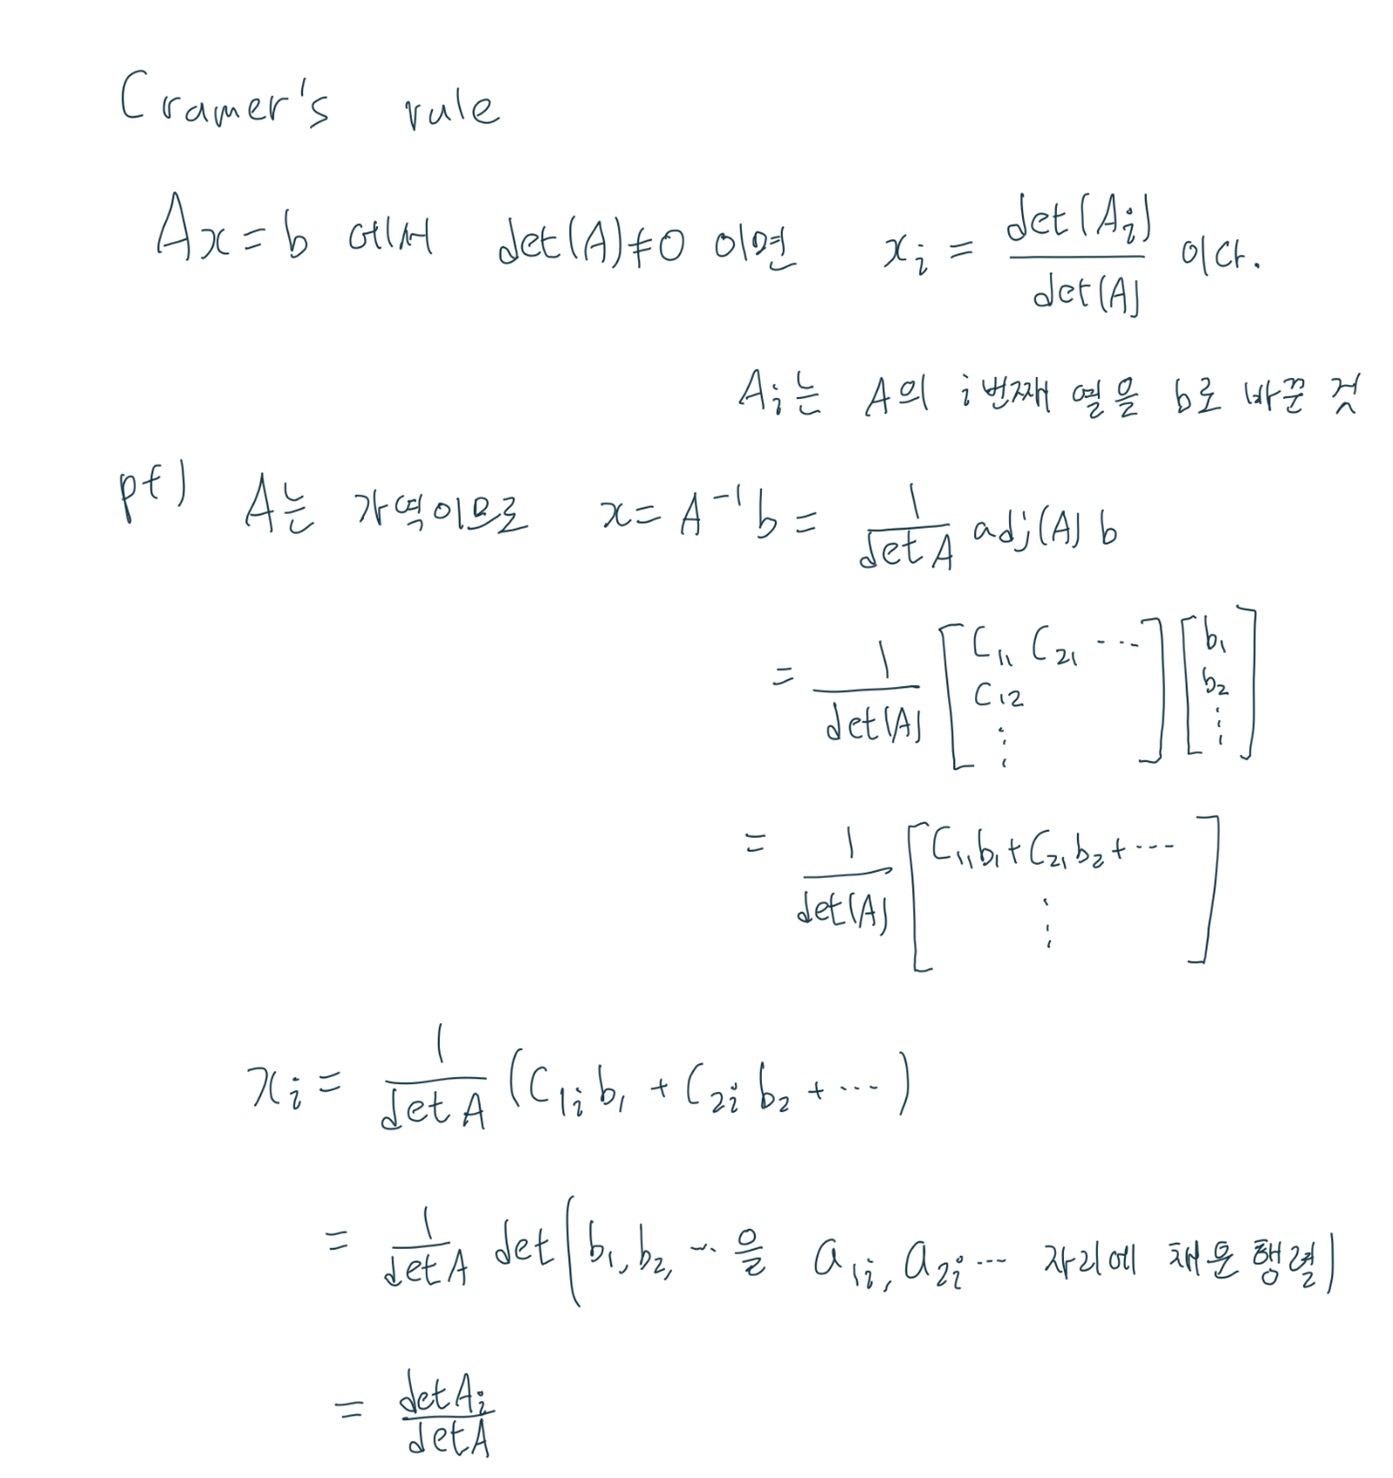 Cramer's rule
Ax = b 에서 det(A)≠0 이면 xᵢ = det(Aᵢ) / det(A) 이다.
Aᵢ는 A의 i번째 열을 b로 바꾼 것
pf) A는 가역이므로 x = A⁻¹b = 1/det A adj(A) b
= 1/det(A) [C₁₁ C₂₁ ⋯ ; C₁₂ ; ⋮] [b₁ ; b₂ ; ⋮]
= 1/det(A) [C₁₁b₁ + C₂₁b₂ + ⋯ ; ⋮]
xᵢ = 1/det A (C₁ᵢb₁ + C₂ᵢb₂ + ⋯)
= 1/det A det(b₁, b₂, ⋯을 a₁ᵢ, a₂ᵢ ⋯ 자리에 채운 행렬)
= det Aᵢ / det A